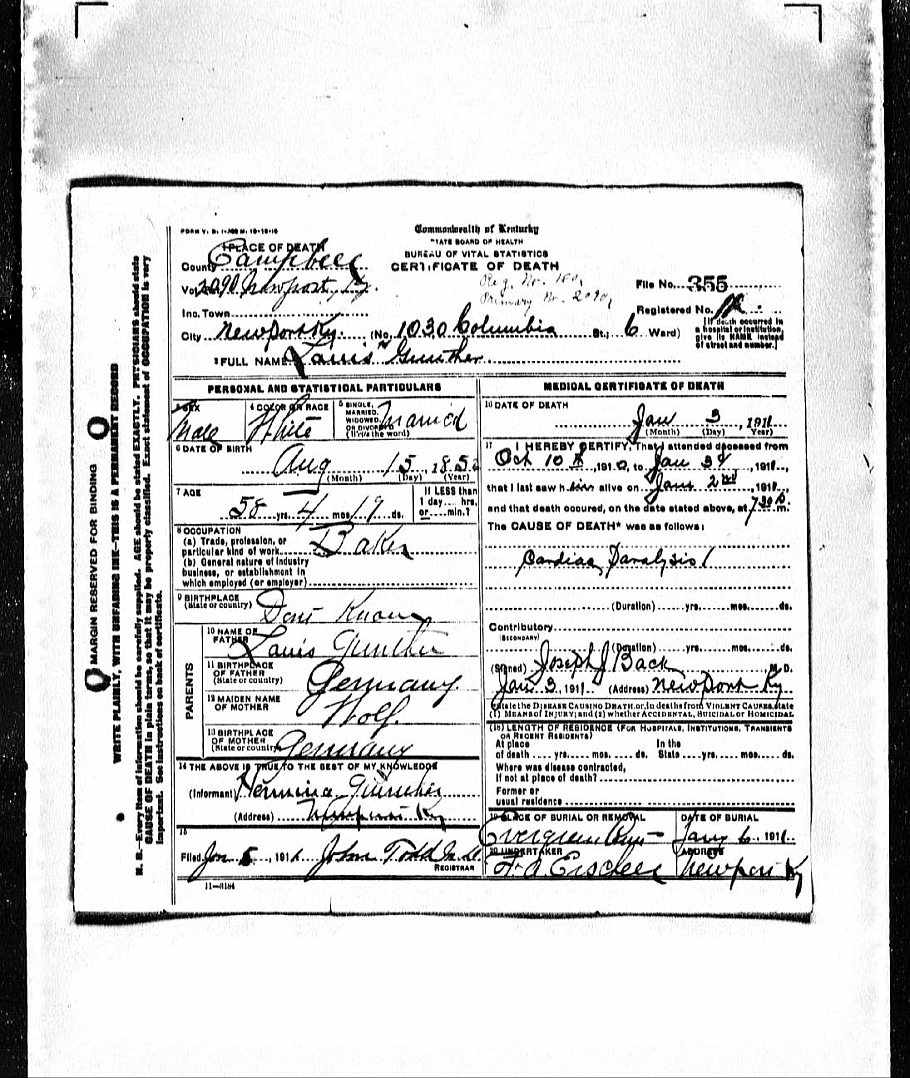 FORM V. S. 1-
Commonwealth of Kentucky
STATE BOARD OF HEALTH
BUREAU OF VITAL STATISTICS
CERTIFICATE OF DEATH
1 PLACE OF DEATH
County Campbell
Vo 2090 Newport, Ky.
Reg. No. 100,
Primary No. 2090,
File No. 355
Registered No.
Inc. Town
City Newport Ky. (No. 1030 Columbia St.; 6 Ward)
[If death occurred in a hospital or institution, give its NAME instead of street and number.]
2 FULL NAME Louis Gunther
PERSONAL AND STATISTICAL PARTICULARS
3 SEX Male
4 COLOR OR RACE White
5 SINGLE, MARRIED, WIDOWED OR DIVORCED (Write the word) Married
6 DATE OF BIRTH
Aug 15, 1852
(Month) (Day) (Year)
7 AGE
58 yrs. 4 mos. 19 ds.
If LESS than 1 day.... hrs. or.....min.?
8 OCCUPATION
(a) Trade, profession, or particular kind of work Baker
(b) General nature of industry business, or establishment in which employed (or employer)
9 BIRTHPLACE
(State or country) Dont Know
PARENTS
10 NAME OF FATHER Louis Gunther
11 BIRTHPLACE OF FATHER (State or country) Germany.
12 MAIDEN NAME OF MOTHER Wolf.
13 BIRTHPLACE OF MOTHER (State or country) Germany
14 THE ABOVE IS TRUE TO THE BEST OF MY KNOWLEDGE
(Informant) Hermina Gunther
(Address) Newport Ky
15
Filed Jan 5, 1911 John Todd M.D.
REGISTRAR
11—3184
MEDICAL CERTIFICATE OF DEATH
16 DATE OF DEATH
Jan 3, 1911
(Month) (Day) (Year)
17 I HEREBY CERTIFY, That I attended deceased from
Oct 10th, 1910, to Jan 3d, 1911,
that I last saw him alive on Jan 2nd, 1911,
and that death occured, on the date stated above, at 7.30 m.
The CAUSE OF DEATH* was as follows:
Cardiac Paralysis
(Duration) yrs. mos. ds.
Contributory
(SECONDARY)
(Duration) yrs. mos. ds.
(Signed) Joseph J Back M.D.
Jan 3, 1911 (Address) Newport Ky
*State the DISEASE CAUSING DEATH, or, in deaths from VIOLENT CAUSES, state (1) MEANS OF INJURY; and (2) whether ACCIDENTAL, SUICIDAL or HOMICIDAL
(18) LENGTH OF RESIDENCE (FOR HOSPITALS, INSTITUTIONS, TRANSIENTS OR RECENT RESIDENTS)
At place of death yrs. mos. ds. In the State yrs. mos. ds.
Where was disease contracted, if not at place of death?
Former or usual residence
19 PLACE OF BURIAL OR REMOVAL Evergreen
DATE OF BURIAL Jany 6, 1911.
20 UNDERTAKER
ADDRESS Newport Ky
MARGIN RESERVED FOR BINDING
WRITE PLAINLY, WITH UNFADING INK—THIS IS A PERMANENT RECORD
N. B.—Every item of information should be carefully supplied. AGE should be stated EXACTLY. PHYSICIANS should state
CAUSE OF DEATH in plain terms, so that it may be properly classified. Exact statement of OCCUPATION is very
important. See instructions on back of certificate.